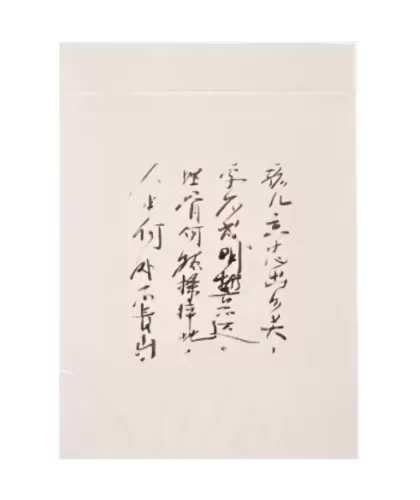 孩儿立志出乡关,
学不成明誓不还。
埋骨何须梓地。
人生何处不青山。